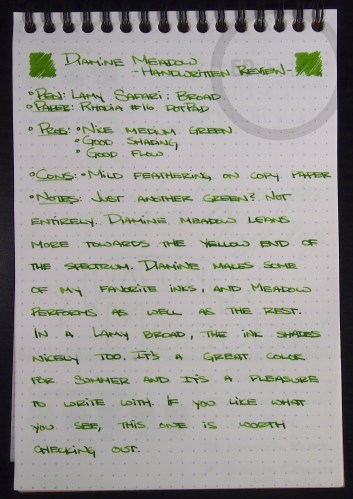 Diamine Meadow
-Handwritten Review-
•Pen: Lamy Safari: Broad
•Paper: Rhodia #16 DotPad
•Pros: •Nice medium green
•Good shading
•Good flow
•Cons: •Mild feathering on copy paper
•Notes: Just another green? Not
entirely. Diamine Meadow leans
more towards the yellow end of
the spectrum. Diamine makes some
of my favorite inks, and Meadow
performs as well as the rest.
In a Lamy Broad, the ink shades
nicely too. It's a great color
for summer and it's a pleasure
to write with. If you like what
you see, this one is worth
checking out.